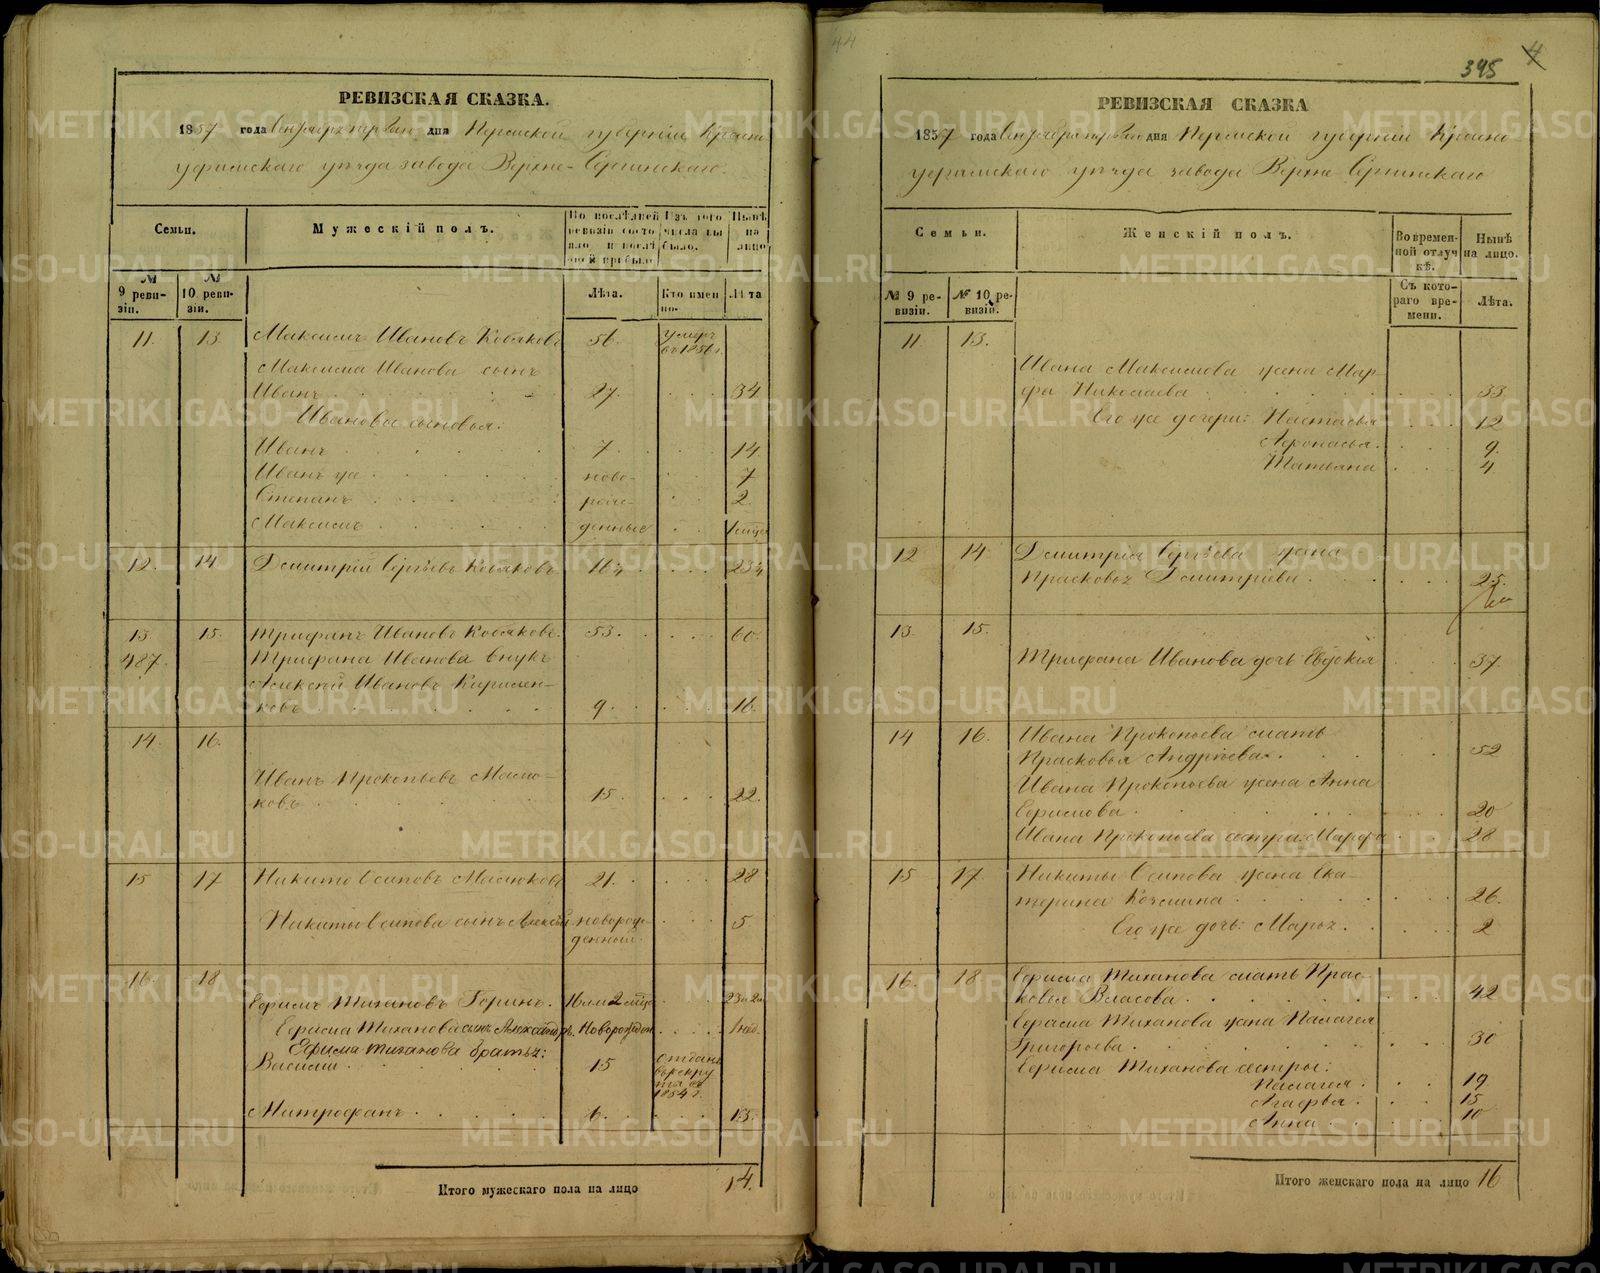 РЕВИЗСКАЯ СКАЗКА.
1857 года Сентября первого дня Пермской губерніи Красно-
уфимскаго уѣзда завода Верхне-Сергинскаго.
Семьи.
Мужескій полъ.
По послѣдней ревизіи состояло и послѣ оной прибыло
Изъ того числа выбыло.
Нынѣ на лицо
№ 9 ревизіи.
№ 10 ревизіи.
Лѣта.
Кто именно.
Лѣта
11. 13. Максимъ Ивановъ Кобяковъ 56. умеръ въ 1856 г.
Максима Иванова сынъ
Иванъ 27. 34
Ивановы сыновья:
Иванъ 7. 14
Иванъ же ново- 7
Степанъ рож- 2
Максимъ денные
12. 14 Дмитрій Сергѣевъ Кобяковъ 16¼ 23¼
13. 15. Трифанъ Ивановъ Кобяковъ. 53. 60.
487. Трифана Иванова внукъ
Алексѣй Ивановъ
ковъ 9. 16.
14. 16.
Иванъ Прокопьевъ Масю-
ковъ 15. 22.
15 17 Никита Осиповъ Масюковъ 21. 28
Никиты Осипова сынъ Алексѣй новорож- 5
денный
16. 18
Ефимъ Тихановъ Горинъ.
Ефима Тиханова сынъ Новорожден.
Ефима Тиханова братья:
Василій 15 отданъ въ рекруты въ 1854 г.
Митрофанъ 6. 13.
Итого мужескаго пола на лицо 14.
44
395
4
РЕВИЗСКАЯ СКАЗКА
1857 года Сентября первого дня Пермской губерніи Красно-
уфимскаго уѣзда завода Верхне-Сергинскаго
Семьи.
Женскій полъ.
Во временной отлучкѣ.
Нынѣ на лицо.
№ 9 ревизіи.
№ 10 ревизіи.
Съ котораго времени.
Лѣта.
11 13.
Ивана Максимова жена Мар-
фа Николаева 33
Его же дочери: Настасья 12
Афонасья. 9.
Татьяна 4
12 14. Дмитрія Сергѣева жена
Прасковья Дмитріева 25.
13 15.
Трифана Иванова дочь Евдокія 37
14 16. Ивана Прокопьева мать
Прасковья Андрѣева. 52
Ивана Прокопьева жена Анна
Ефимова 20
Ивана Прокопьева сестра Марфа 28
15 17. Никиты Осипова жена Ека-
терина Козмина 26.
Его же дочь: Марья. 2
16. 18 Ефима Тиханова мать Прас-
ковья Власова. 42
Ефима Тиханова жена Палагея
Григорьева. 30
Ефима Тиханова сестры:
Палагея. 19
Агафья. 15
Анна 10
Итого женскаго пола на лицо 16
METRIKI.GASO-URAL.RU